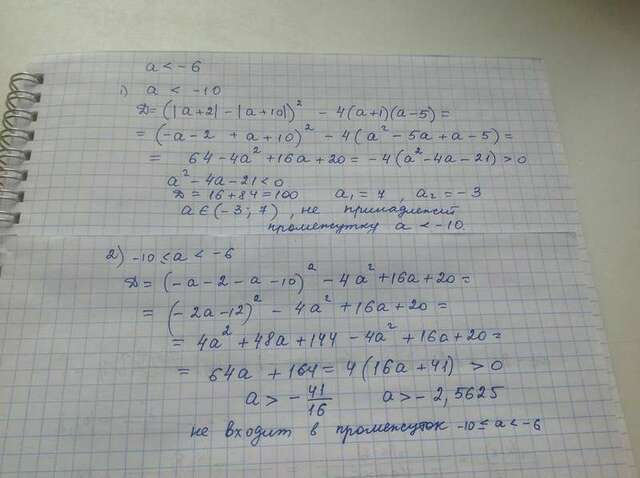 a < -6
1) a < -10
D = (|a+2| - |a+10|)² - 4(a+1)(a-5) =
= (-a-2 + a+10)² - 4(a² - 5a + a - 5) =
= 64 - 4a² + 16a + 20 = -4(a² - 4a - 21) > 0
a² - 4a - 21 < 0
D = 16 + 84 = 100 a₁ = 7, a₂ = -3
a ∈ (-3; 7), не принадлежит
промежутку a < -10.
2) -10 ≤ a < -6
D = (-a-2-a-10)² - 4a² + 16a + 20 =
= (-2a-12)² - 4a² + 16a + 20 =
= 4a² + 48a + 144 - 4a² + 16a + 20 =
= 64a + 164 = 4(16a + 41) > 0
a > - 41/16 a > - 2,5625
не входит в промежуток -10 ≤ a < -6